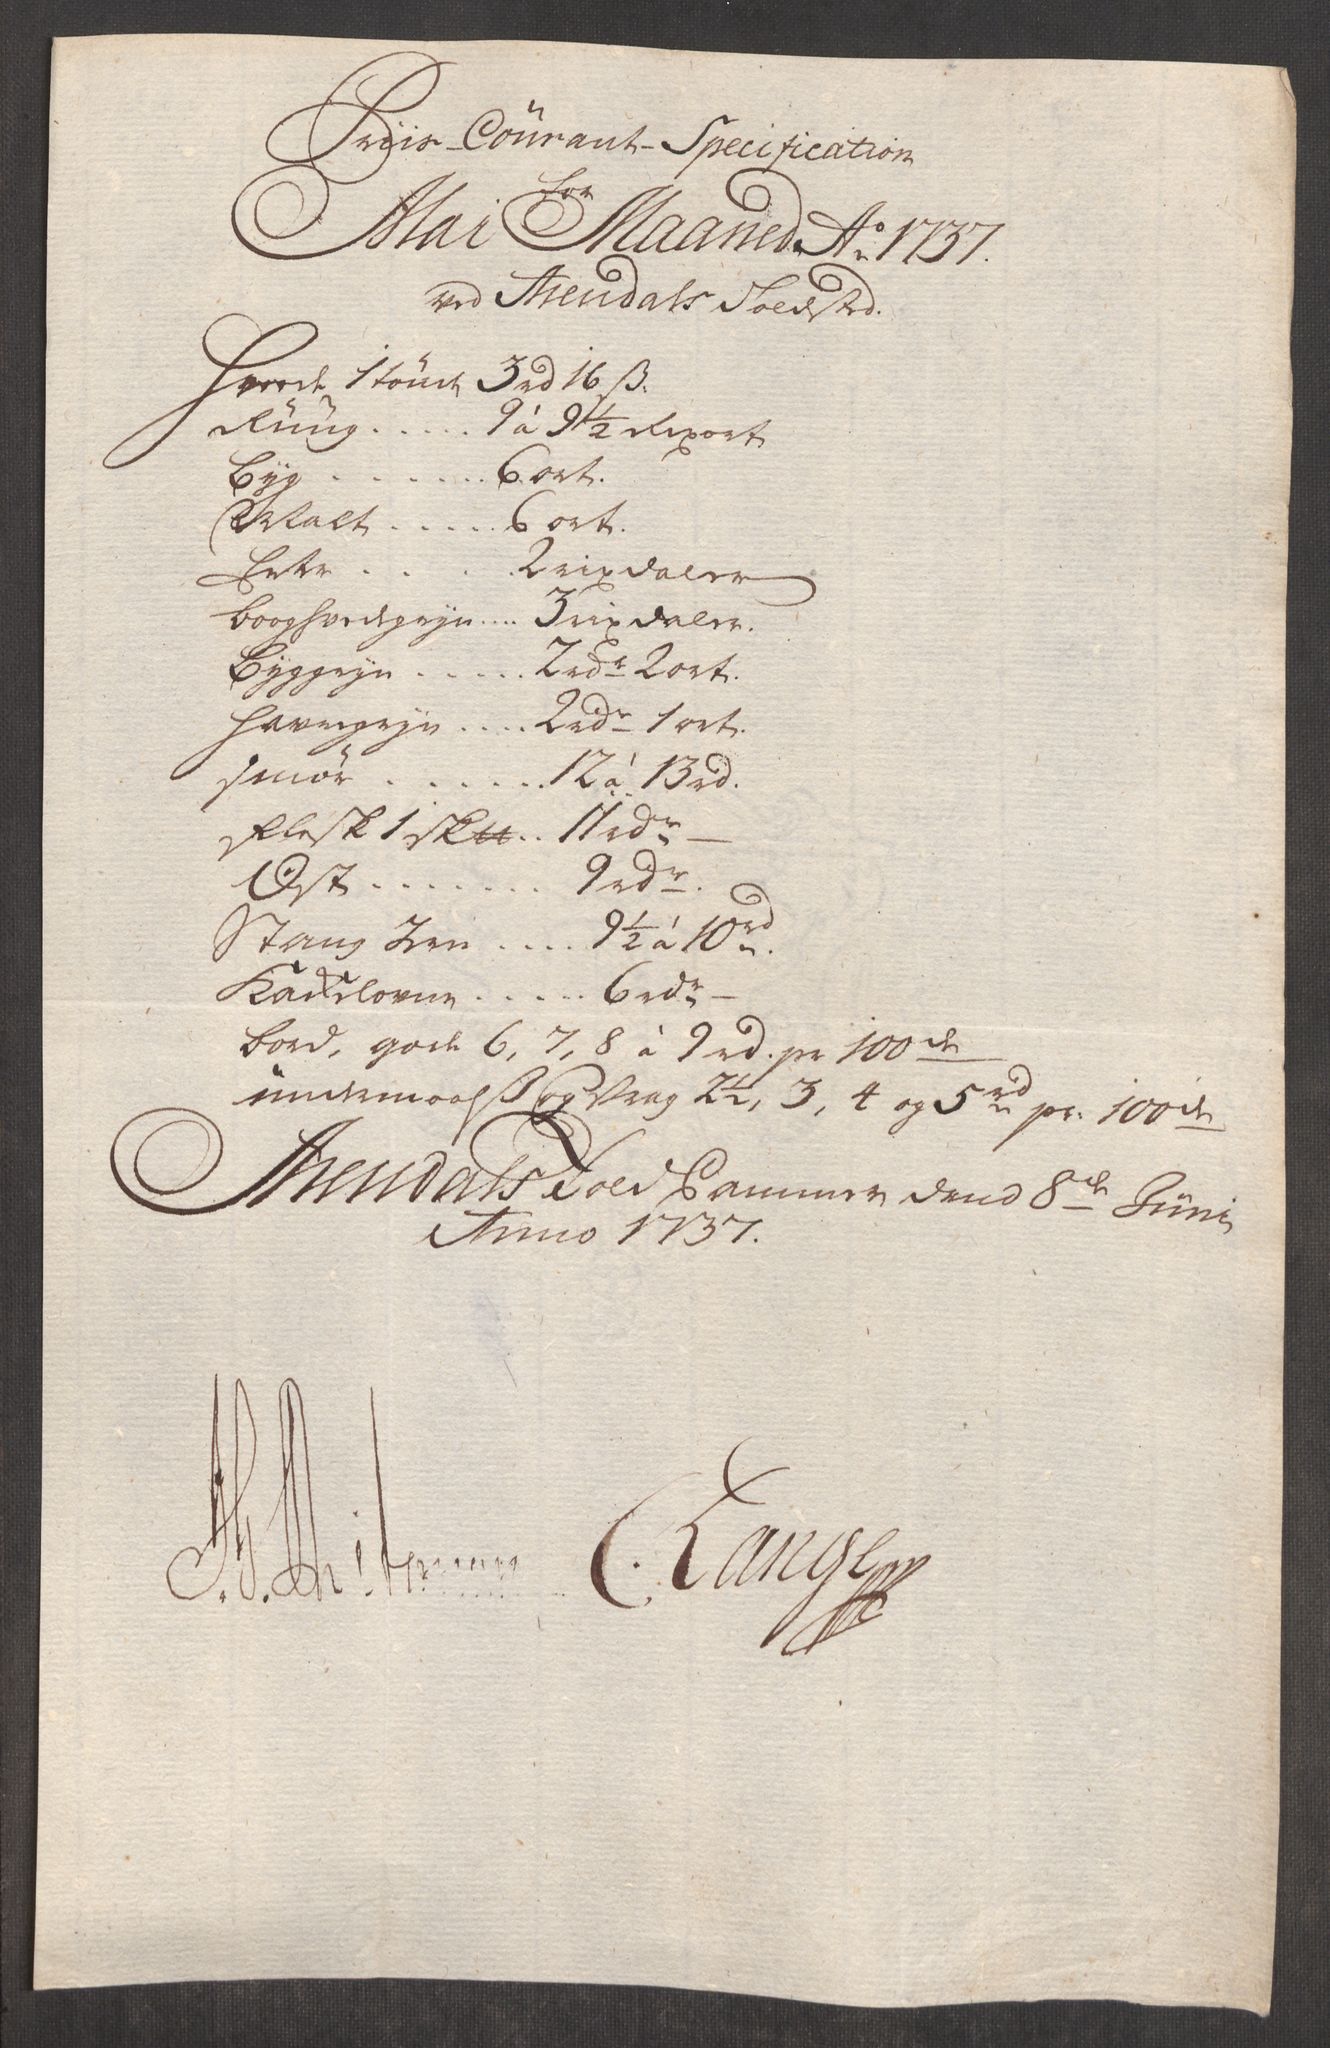 Priis-Courant-Specification
for
Mai Maaned Ao 1737.
ved Arendals Toldsted.
Hvede 1 tönde 3 rd 16 ß.
Rüüg ..... 9 à 9½ Rixort
Byg ....... 6 ort.
Malt ..... 6 ort.
Erter .... 2 rixdaler
Boghvedegryn .... 3 rixdaler.
Byggryn ..... 2 rdr 2 ort.
Havregryn .... 2 rdr 1 ort.
Smör ...... 12 à 13 rd.
Flesk 1 sk℔ .. 11 rdr —
Ost ....... 9 rdr.
Stang Jern .... 9½ à 10 rd.
Kackelovne ..... 6 rdr —
Bord, gode 6, 7, 8 à 9 rd. pr 100de
undermaalß og Vrag 2½, 3, 4 og 5 rd pr. 100de
Arendals Told Cammer dend 8de Jüni
Anno 1737.
C. Lange